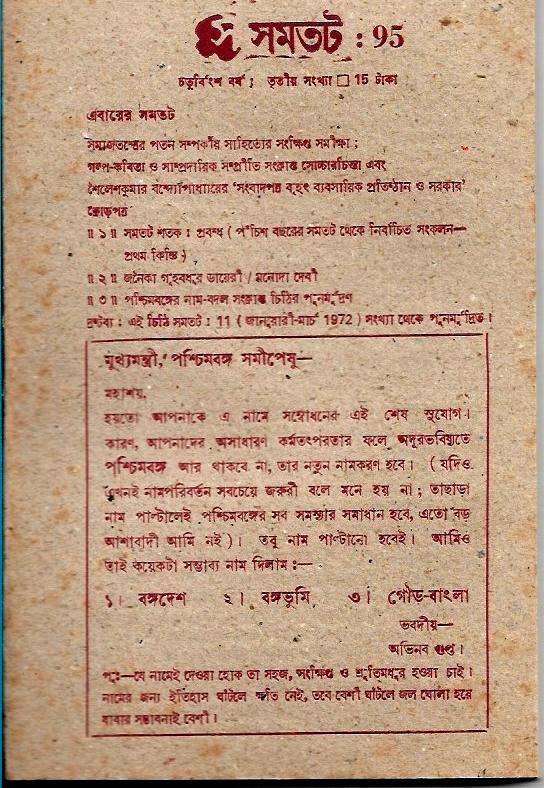 সমতট : 95
চতুর্বিংশ বর্ষ ; তৃতীয় সংখ্যা □ 15 টাকা
এবারের সমতট
সমাজতন্ত্রের পতন সম্পর্কীয় সাহিত্যের সংক্ষিপ্ত সমীক্ষা ;
গল্প-কবিতা ও সাম্প্রদায়িক সম্প্রীতি সংক্রান্ত সোচ্চারচিন্তা এবং
শৈলেশকুমার বন্দ্যোপাধ্যায়ের 'সংবাদপত্র বৃহৎ ব্যবসায়িক প্রতিষ্ঠান ও সরকার'
ক্রোড়পত্র
॥ ১ ॥ সমতট শতক : প্রবন্ধ ( পঁচিশ বছরের সমতট থেকে নির্বাচিত সংকলন—
প্রথম কিস্তি )
॥ ২ ॥ জনৈকা গৃহবধূর ডায়েরী / মনোদা দেবী
॥ ৩ ॥ পশ্চিমবঙ্গের নাম-বদল সংক্রান্ত চিঠির পুনর্মুদ্রণ
দ্রষ্টব্য : এই চিঠি সমতট : 11 ( জানুয়ারী-মার্চ 1972 ) সংখ্যা থেকে পুনর্মুদ্রিত।
মুখ্যমন্ত্রী, পশ্চিমবঙ্গ সমীপেষু—
মহাশয়,
হয়তো আপনাকে এ নামে সম্বোধনের এই শেষ সুযোগ।
কারণ, আপনাদের অসাধারণ কর্মতৎপরতার ফলে অদূরভবিষ্যতে
পশ্চিমবঙ্গ আর থাকবে না, তার নতুন নামকরণ হবে। ( যদিও
এখনই নামপরিবর্তন সবচেয়ে জরুরী বলে মনে হয় না ; তাছাড়া
নাম পাল্টালেই পশ্চিমবঙ্গের সব সমস্যার সমাধান হবে, এতো বড়
আশাবাদী আমি নই )। তবু নাম পাল্টানো হবেই। আমিও
তাই কয়েকটা সম্ভাব্য নাম দিলাম :—
১। বঙ্গদেশ ২। বঙ্গভূমি ৩। গৌড়-বাংলা
ভবদীয়—
অভিনব গুপ্ত।
পুঃ—যে নামেই দেওয়া হোক তা সহজ, সংক্ষিপ্ত ও শ্রুতিমধুর হওয়া চাই।
নামের জন্য ইতিহাস ঘাঁটলে ক্ষতি নেই, তবে বেশী ঘাঁটলে জল ঘোলা হয়ে
যাবার সম্ভাবনাই বেশী।